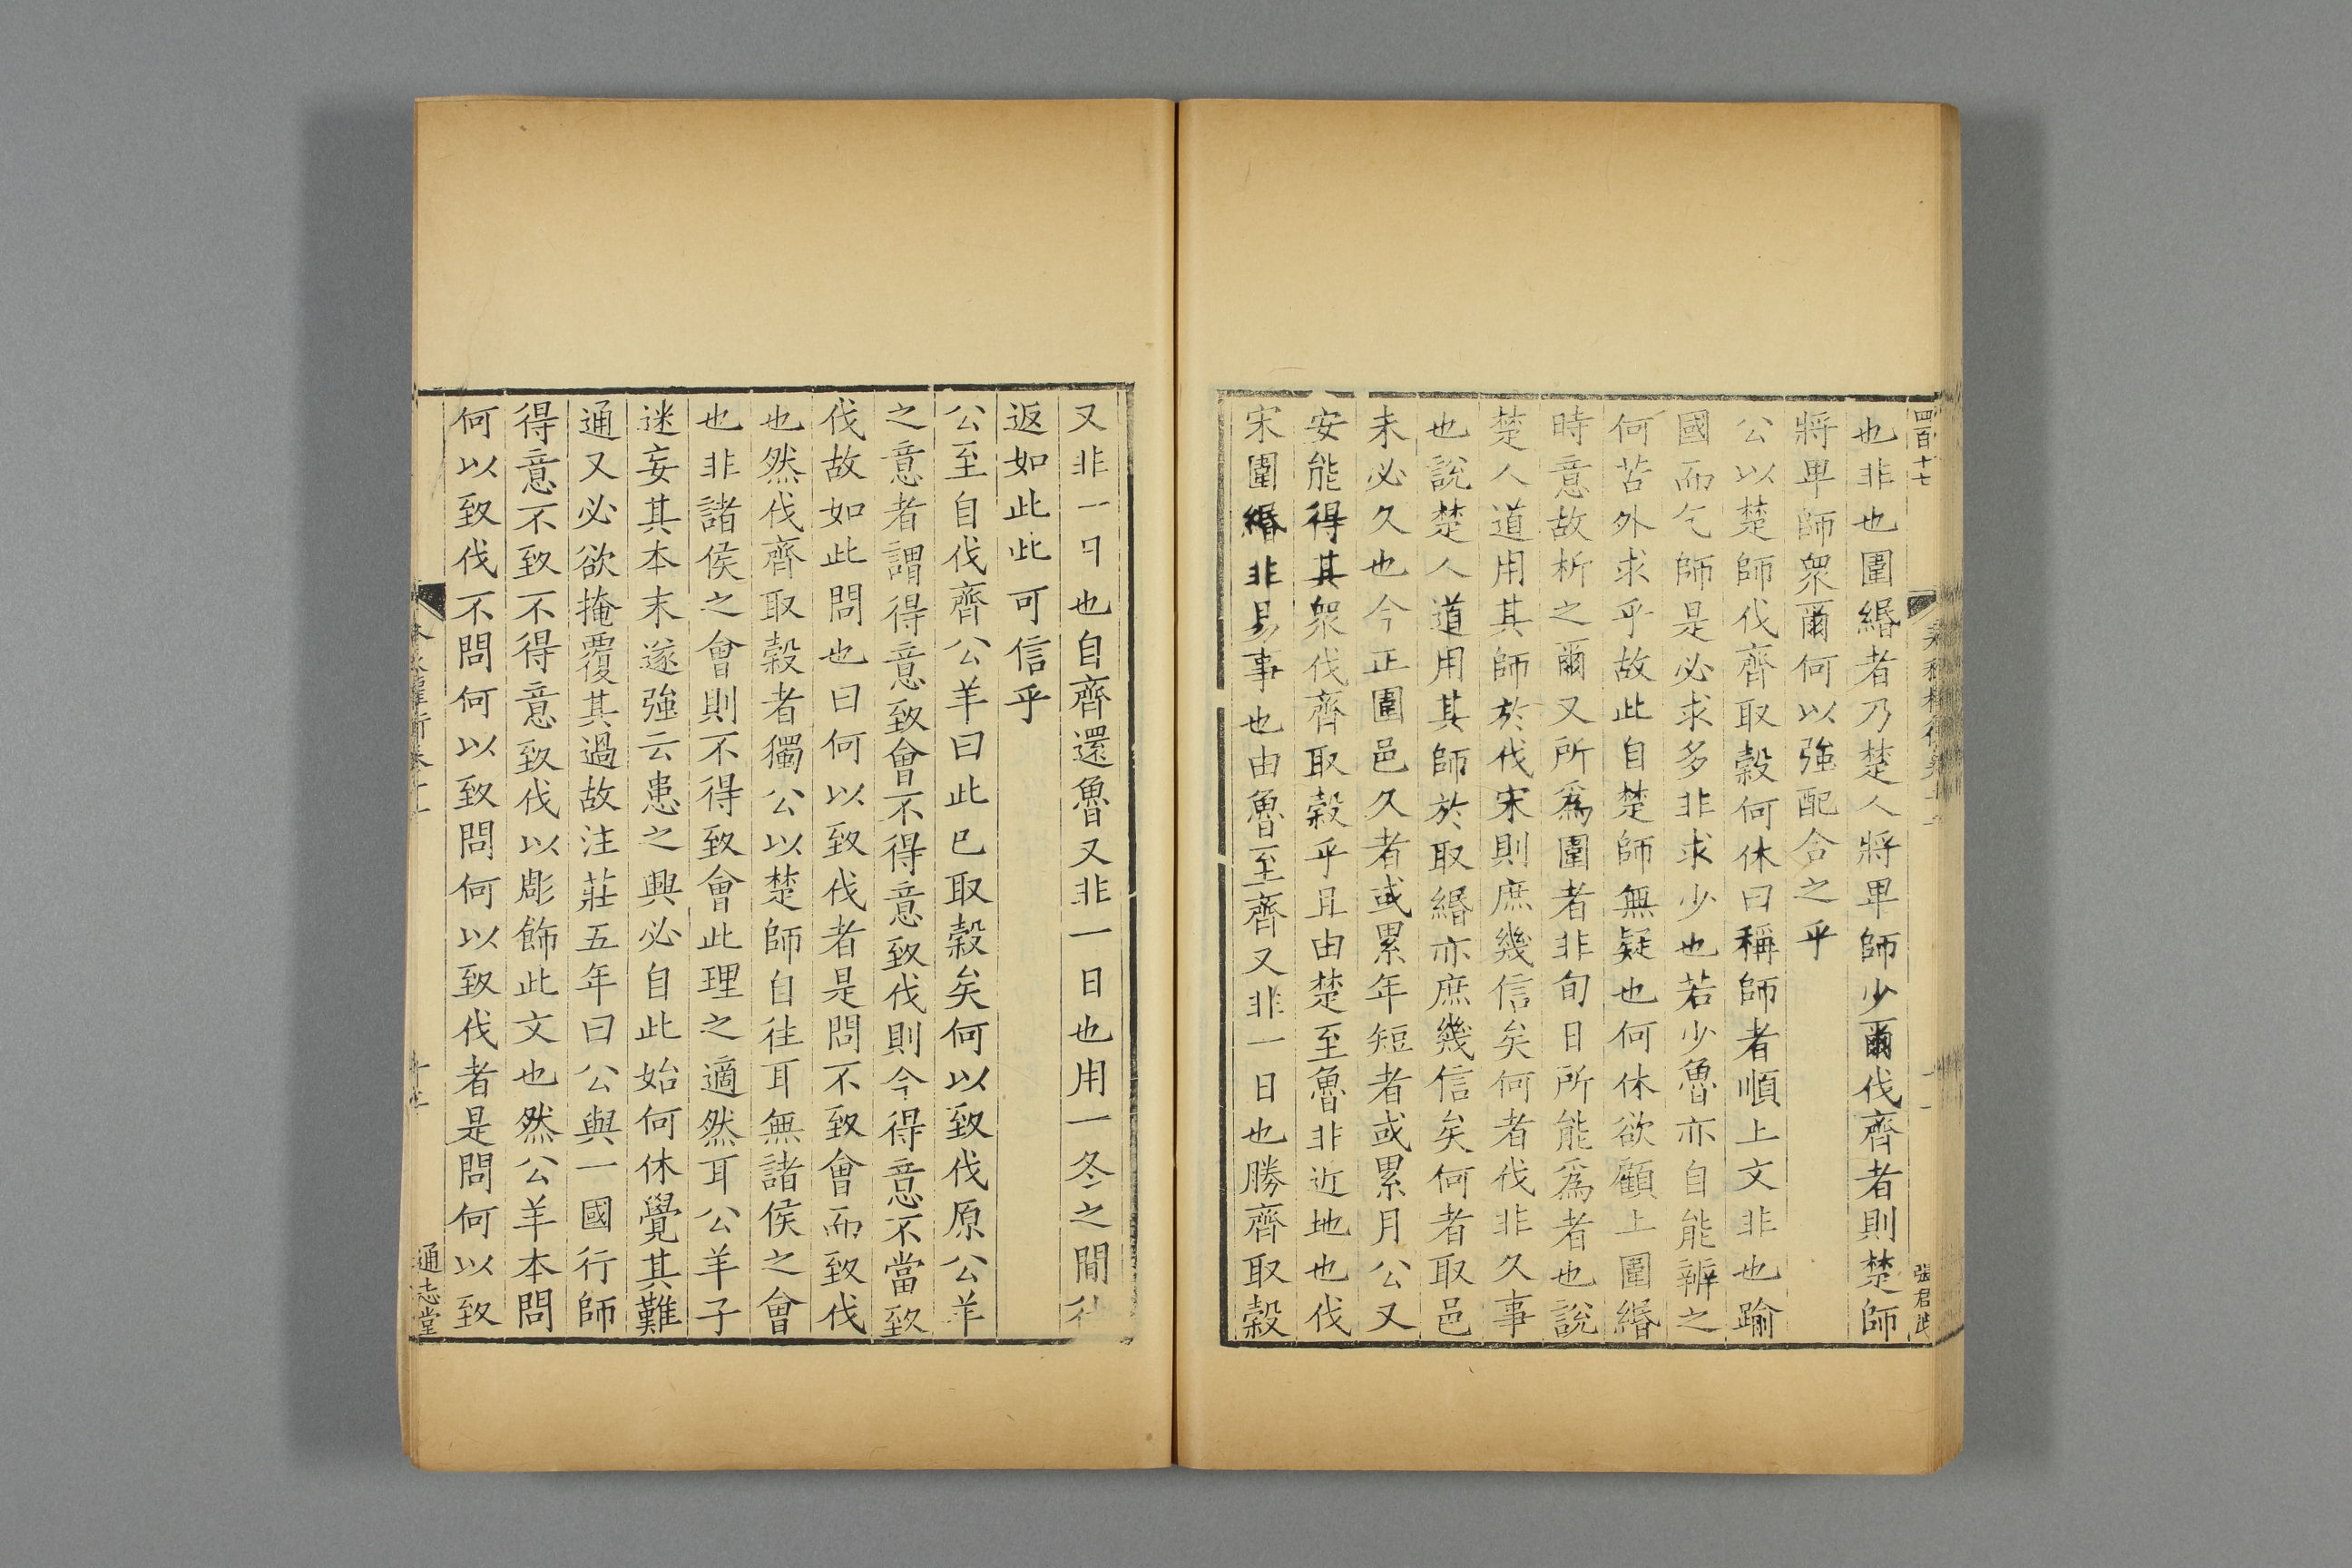 四百十七
張君
也非也圍緡者乃楚人將卑師少爾伐齊者則楚師
將卑師衆爾何以強配合之乎
公以楚師伐齊取穀何休曰稱師者順上文非也踰
國而乞師是必求多非求少也若少魯亦自能辦之
何苦外求乎故此自楚師無疑也何休欲顧上圍緡
時意故析之爾又所爲圍者非旬日所能爲者也說
楚人道用其師於伐宋則庶幾信矣何者伐非久事
也說楚人道用其師於取緡亦庶幾信矣何者取邑
未必久也今正圍邑久者或累年短者或累月公又
安能得其衆伐齊取穀乎且由楚至魯非近地也伐
宋圍緡非易事也由魯至齊又非一日也勝齊取穀
又非一日也自齊還魯又非一日也用一冬之間
返如此此可信乎
公至自伐齊公羊曰此已取穀矣何以致伐原公羊
之意者謂得意致會不得意致伐則今得意不當致
伐故如此問也曰何以致伐者是問不致會而致伐
也然伐齊取穀者獨公以楚師自往耳無諸侯之會
也非諸侯之會則不得致會此理之適然耳公羊子
迷妄其本末遂強云患之興必自此始何休覺其難
通又必欲掩覆其過故注莊五年曰公與一國行師
得意不致不得意致伐以彫飾此文也然公羊本問
何以致伐不問何以致問何以致伐者是問何以致
通志堂